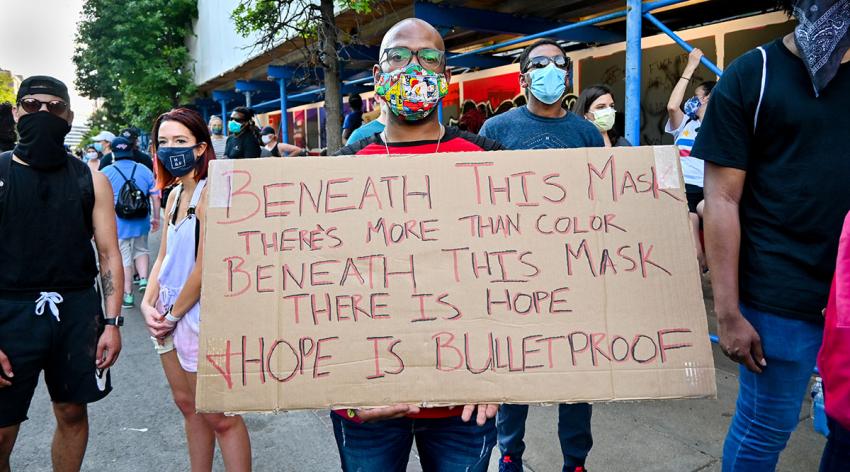 BENEATH THIS MASK
THERE'S MORE THAN COLOR
BENEATH THIS MASK
THERE IS HOPE
& HOPE IS BULLETPROOF